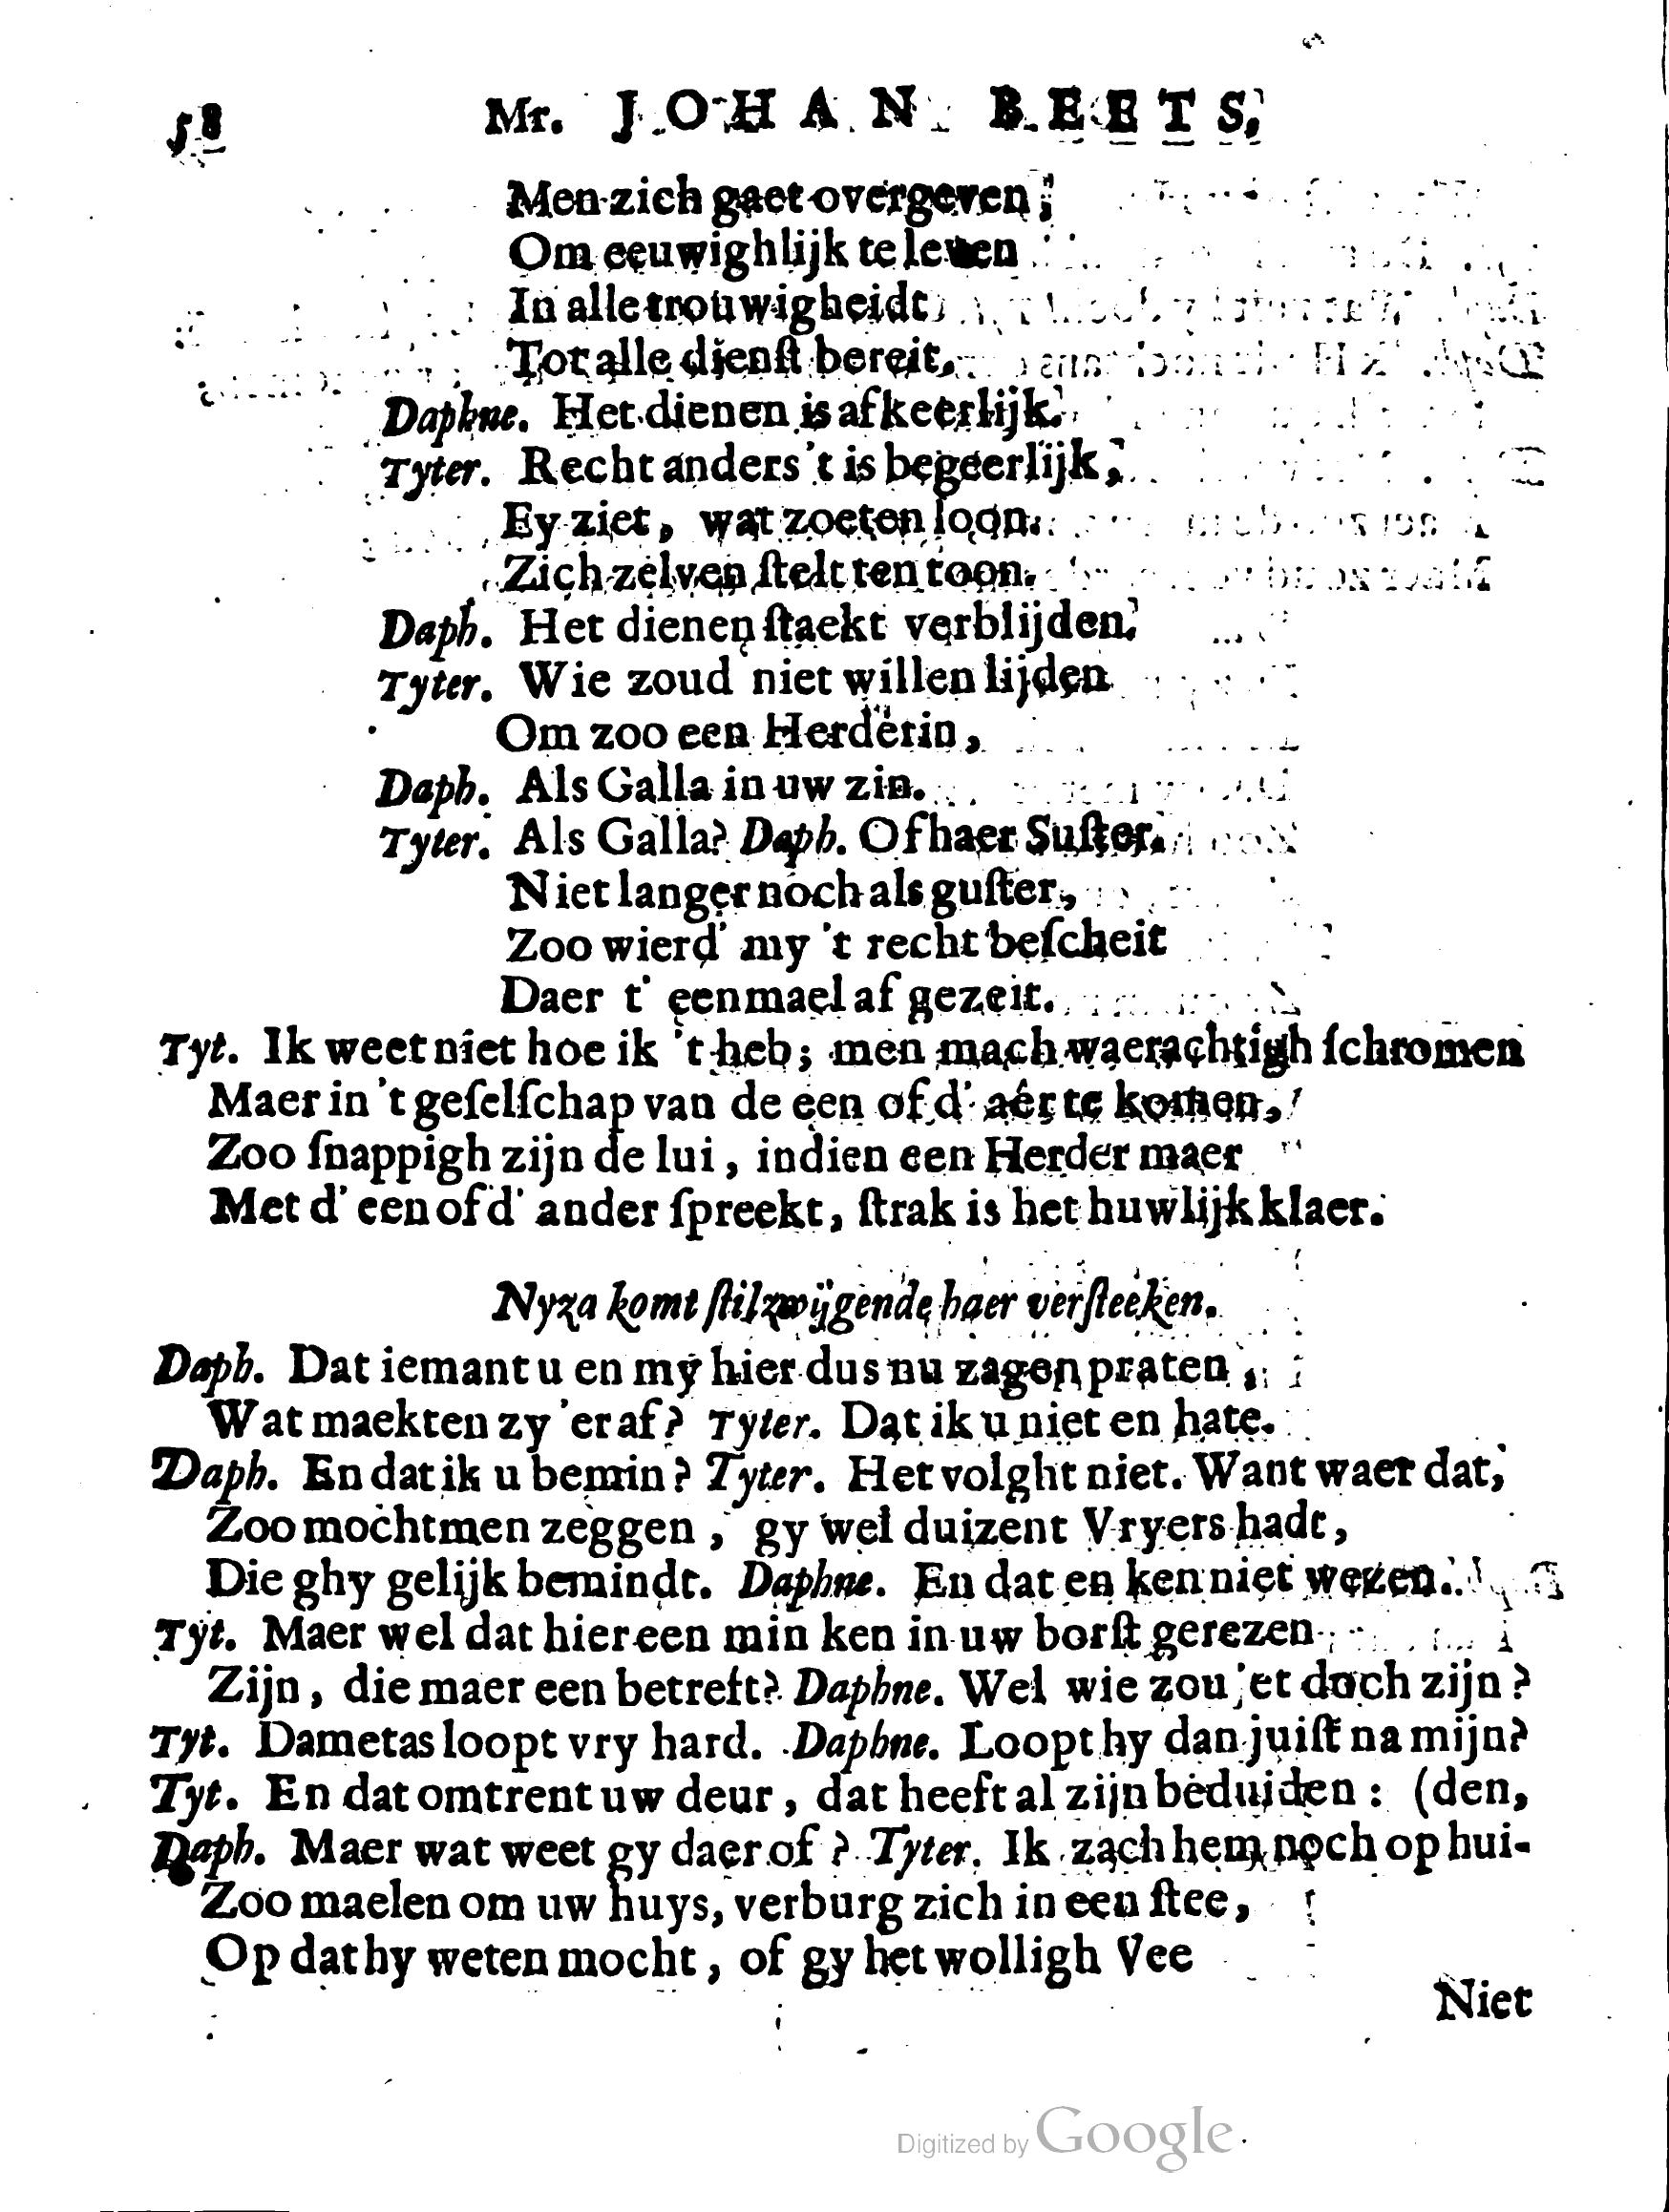 58 Mr. JOHAN BEETS,
Men zich gaet overgeven,
Om eeuwighlijk te leven
In alle trouwigheidt
Tot alle dienſt bereit.
Daphne. Het dienen is afkeerlijk.
Tyter. Recht anders 't is begeerlijk,
Ey ziet, wat zoeten loon.
Zich zelven ſtelt ten toon.
Daph. Het dienen ſtaekt verblijden.
Tyter. Wie zoud niet willen lijden
Om zoo een Herderin,
Daph. Als Galla in uw zin.
Tyter. Als Galla? Daph. Of haer Suſter.
Niet langer noch als guſter,
Zoo wierd' my 't recht beſcheit
Daer t' eenmael af gezeit.
Tyt. Ik weet niet hoe ik 't heb; men mach waerachtigh ſchromen
Maer in 't geſelſchap van de een of d' aêr te komen,
Zoo ſnappigh zijn de lui, indien een Herder maer
Met d' een of d' ander ſpreekt, ſtrak is het huwlijk klaer.
Nyza komt ſtilzwijgende haer verſteeken.
Daph. Dat iemant u en my hier dus nu zagen praten,
Wat maekten zy 'er af? Tyter. Dat ik u niet en hate.
Daph. En dat ik u bemin? Tyter. Het volght niet. Want waer dat,
Zoo mochtmen zeggen, gy wel duizent Vryers hadt,
Die ghy gelijk bemindt. Daphne. En dat en ken niet wezen.
Tyt. Maer wel dat hier een min ken in uw borſt gerezen
Zijn, die maer een betreft? Daphne. Wel wie zou 'et doch zijn?
Tyt. Dametas loopt vry hard. Daphne. Loopt hy dan juiſt na mijn?
Tyt. En dat omtrent uw deur, dat heeft al zijn beduiden: (den,
Daph. Maer wat weet gy daer of? Tyter. Ik zach hem noch op hui-
Zoo maelen om uw huys, verburg zich in een ſtee,
Op dat hy weten mocht, of gy het wolligh Vee
Niet
Digitized by Google